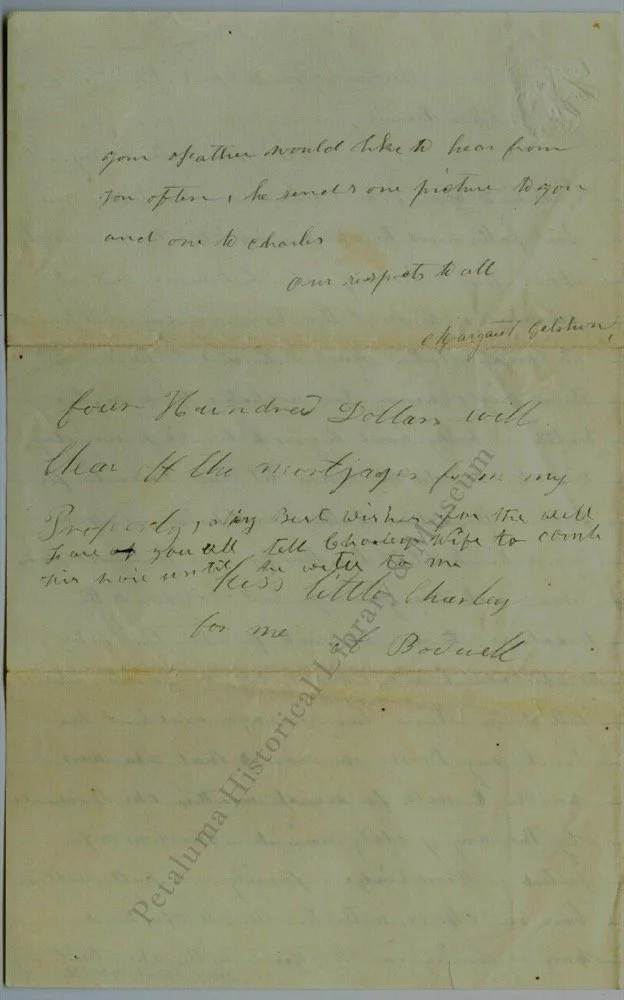 your Father would like to hear from
you often, he sends one picture to you
and one to Charles
our respects to all
Margaret Gelshun,
four Hundred Dollars will
Clear off the mortgages from my
Property, My Best wishes for the well
fare of you all tell Charleys Wife to comb
his hair until he write to me
Kiss little Charley
for me A Bodwell
Petaluma Historical Library & Museum